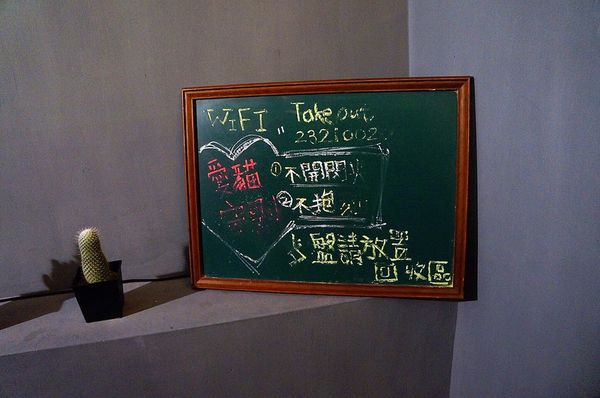 WIFI " Takeout
2321002
愛貓
守則
①不開閃光
②不抱
盤請放置
回收區